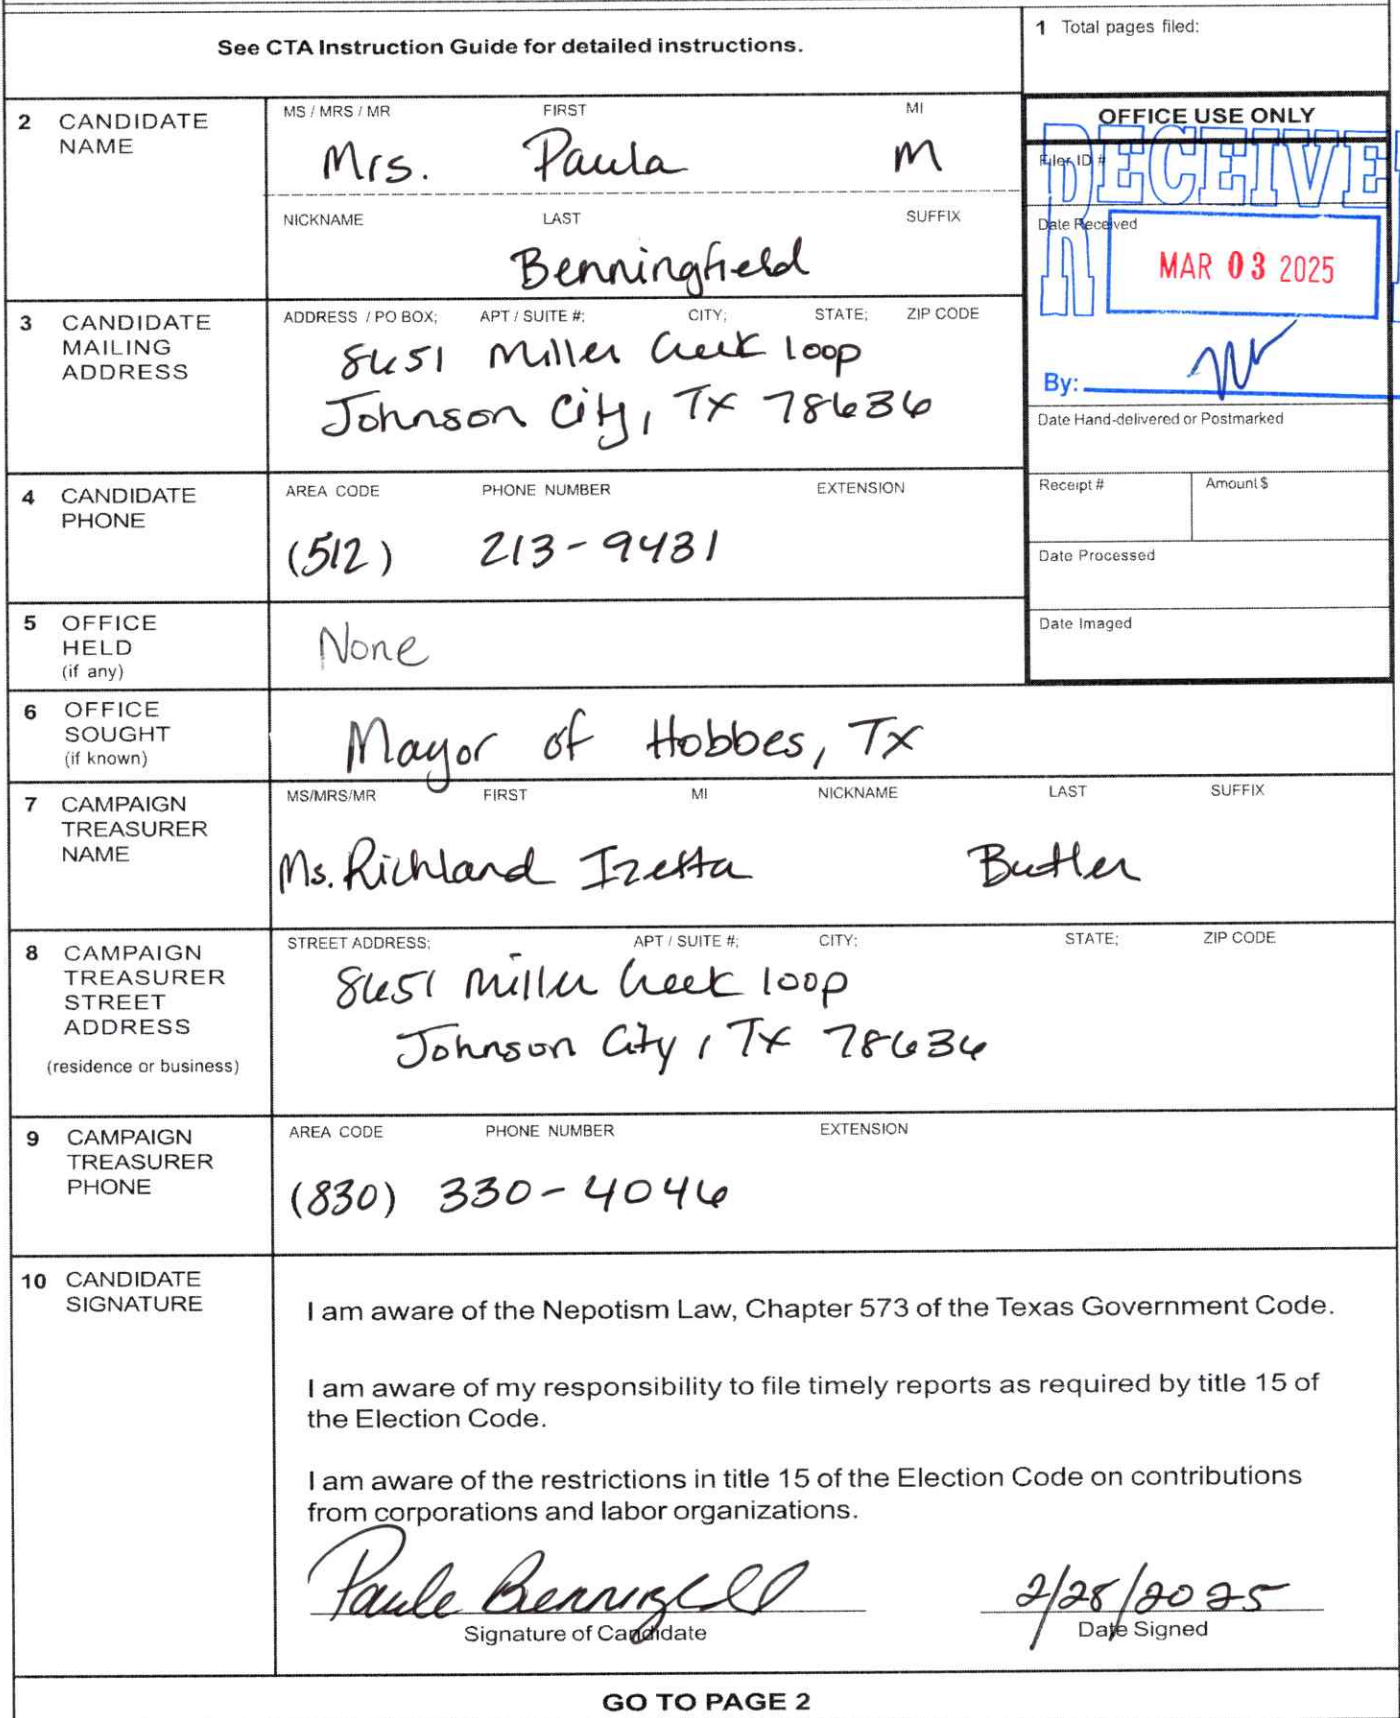 See CTA Instruction Guide for detailed instructions.
1 Total pages filed:
2 CANDIDATE NAME
MS / MRS / MR FIRST MI
Mrs. Paula M
NICKNAME LAST SUFFIX
Benningfield
OFFICE USE ONLY
Filer ID #
RECEIVE
Date Received
MAR 03 2025
By:
Date Hand-delivered or Postmarked
Receipt # Amount $
Date Processed
Date Imaged
3 CANDIDATE MAILING ADDRESS
ADDRESS / PO BOX; APT / SUITE #; CITY; STATE; ZIP CODE
8651 Miller Creek loop
Johnson City, TX 78636
4 CANDIDATE PHONE
AREA CODE PHONE NUMBER EXTENSION
(512) 213-9431
5 OFFICE HELD (if any)
None
6 OFFICE SOUGHT (if known)
Mayor of Hobbes, TX
7 CAMPAIGN TREASURER NAME
MS/MRS/MR FIRST MI NICKNAME LAST SUFFIX
Ms. Richland Izetta Butler
8 CAMPAIGN TREASURER STREET ADDRESS
(residence or business)
STREET ADDRESS; APT / SUITE #; CITY; STATE; ZIP CODE
8651 Miller Creek loop
Johnson City, TX 78636
9 CAMPAIGN TREASURER PHONE
AREA CODE PHONE NUMBER EXTENSION
(830) 330-4046
10 CANDIDATE SIGNATURE
I am aware of the Nepotism Law, Chapter 573 of the Texas Government Code.
I am aware of my responsibility to file timely reports as required by title 15 of
the Election Code.
I am aware of the restrictions in title 15 of the Election Code on contributions
from corporations and labor organizations.
2/28/2025
Signature of Candidate Date Signed
GO TO PAGE 2